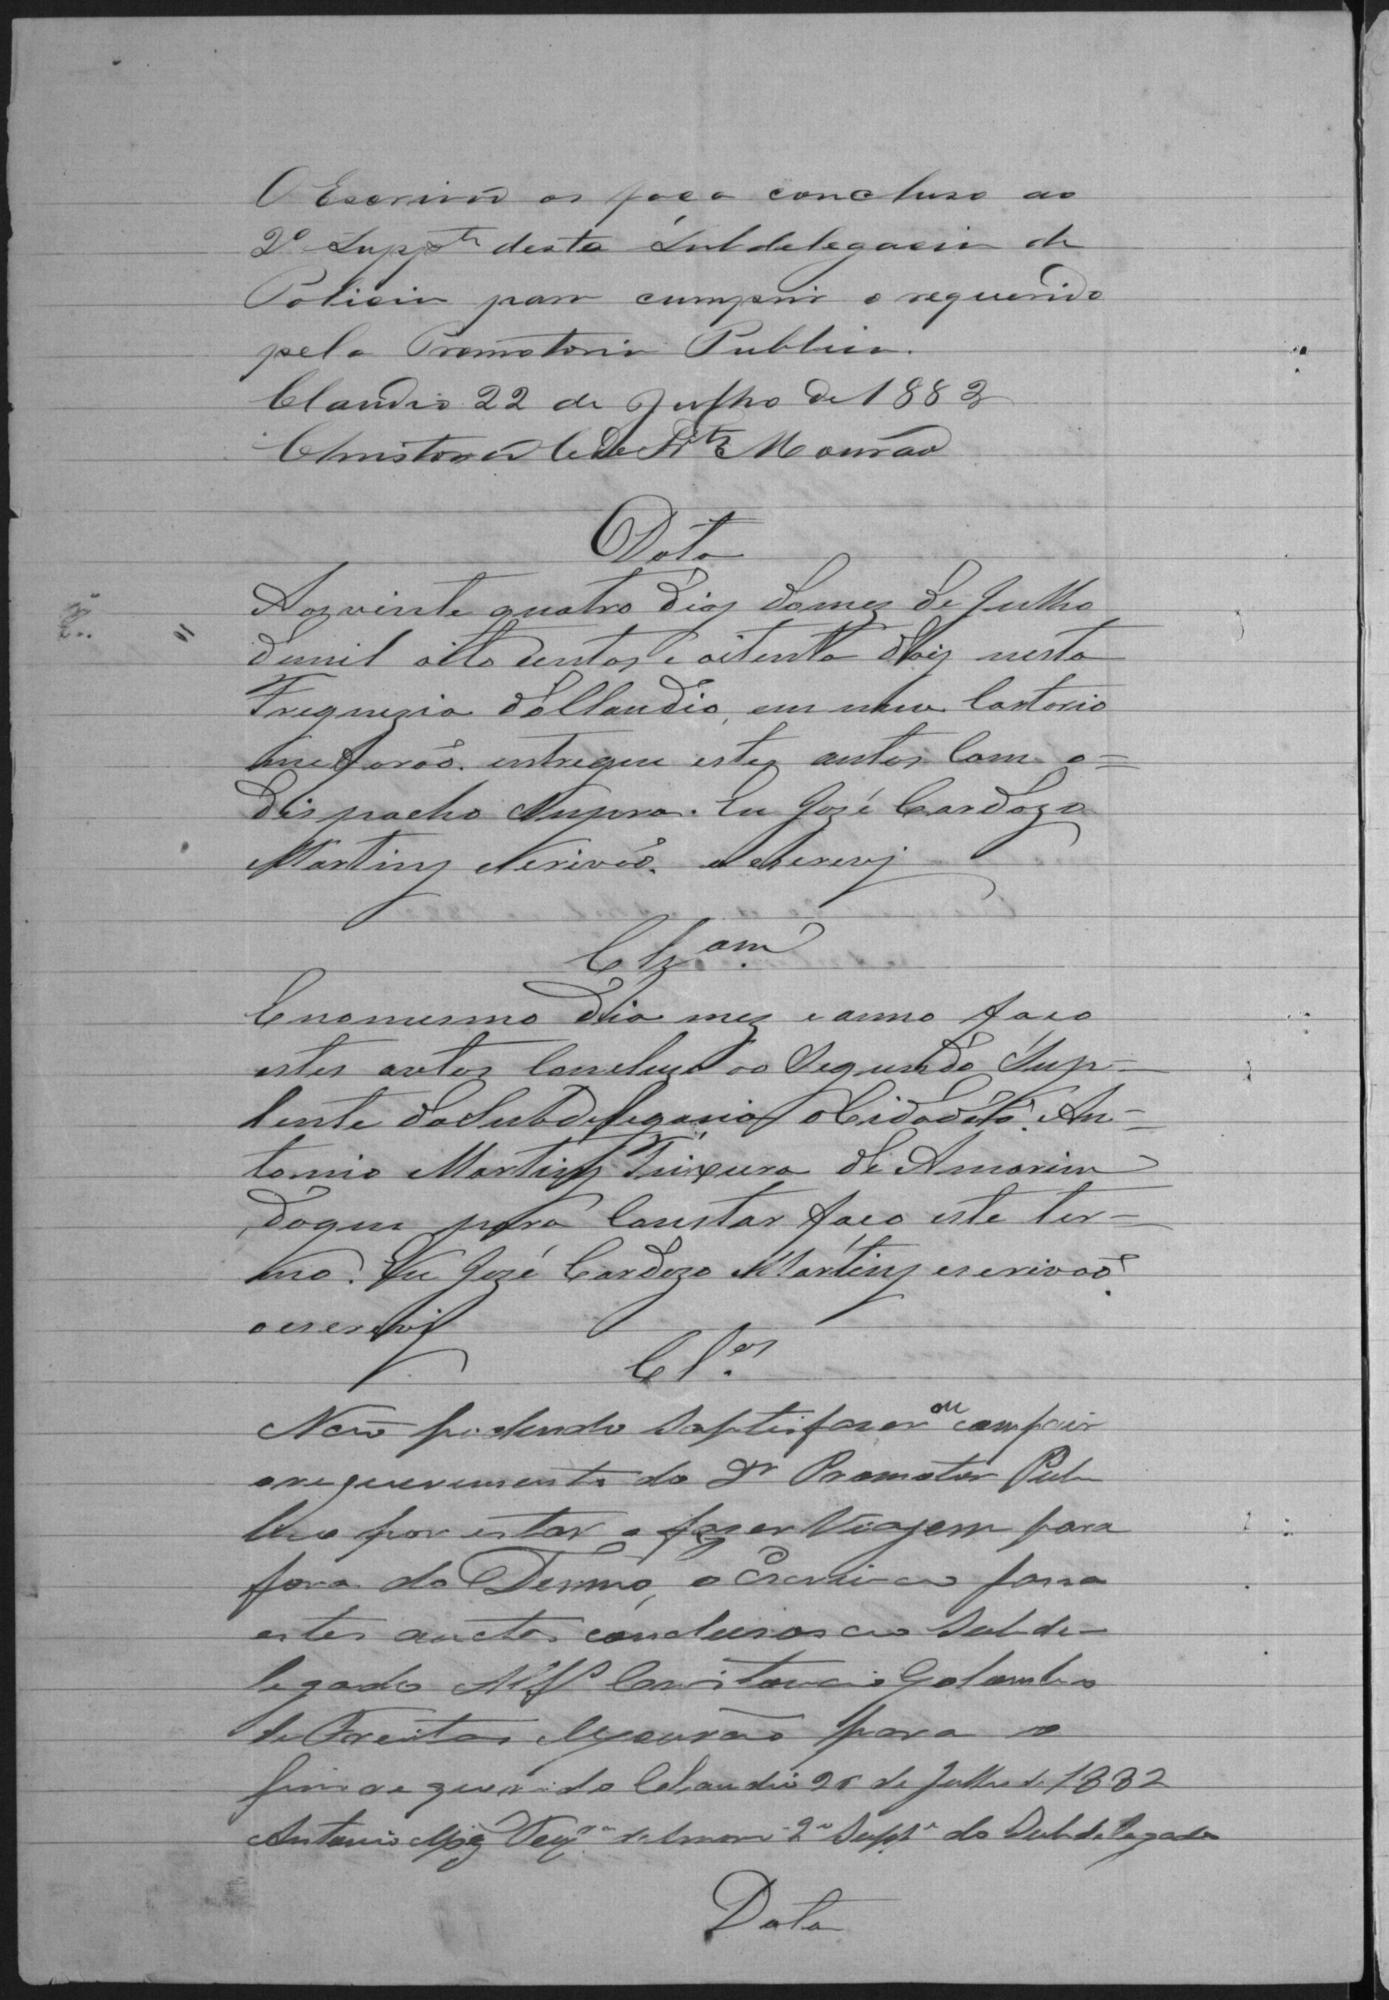 O Escrivão os faça concluso ao
2º Suppte desta Subdelegacia de
Policia para cumprir o requerido
pela Promotoria Publica.
Claudio 22 de Julho de 1882
Mourão
Data
Aos vinte quatro dias do mez de Julho
de mil oito centos e oitenta dois nesta
Freguezia do Claudio, em meu Cartorio
me forão entregue estes autos com o =
dispacho supra. Eu José Cardozo
Martins escrivão. o escrevj
Clzam
E no mesmo dia mez e anno faço
estes autos concluzo ao Segundo Sup=
lente da Subdelegacia o Cidadão An=
tonio Martins Teixeira de Amorim
do que para Constar faço este ter=
mo. Eu José Cardozo Martins escrivão
o escrevj
Cl.os
Não podendo saptisfazer ou comprir
o requerimento do Dr Promotor Pub
lico por estar a fazer Viajem para
fora do Termo, o Escrivão fassa
estes auctos conclusos ao Subde-
legado Alfs
de Freitas Mourão para o
fim requerido Claudio de Julho de 1882
Antonio Miz Teixra de Amorim 2º Suppe do Subdelegado
Data